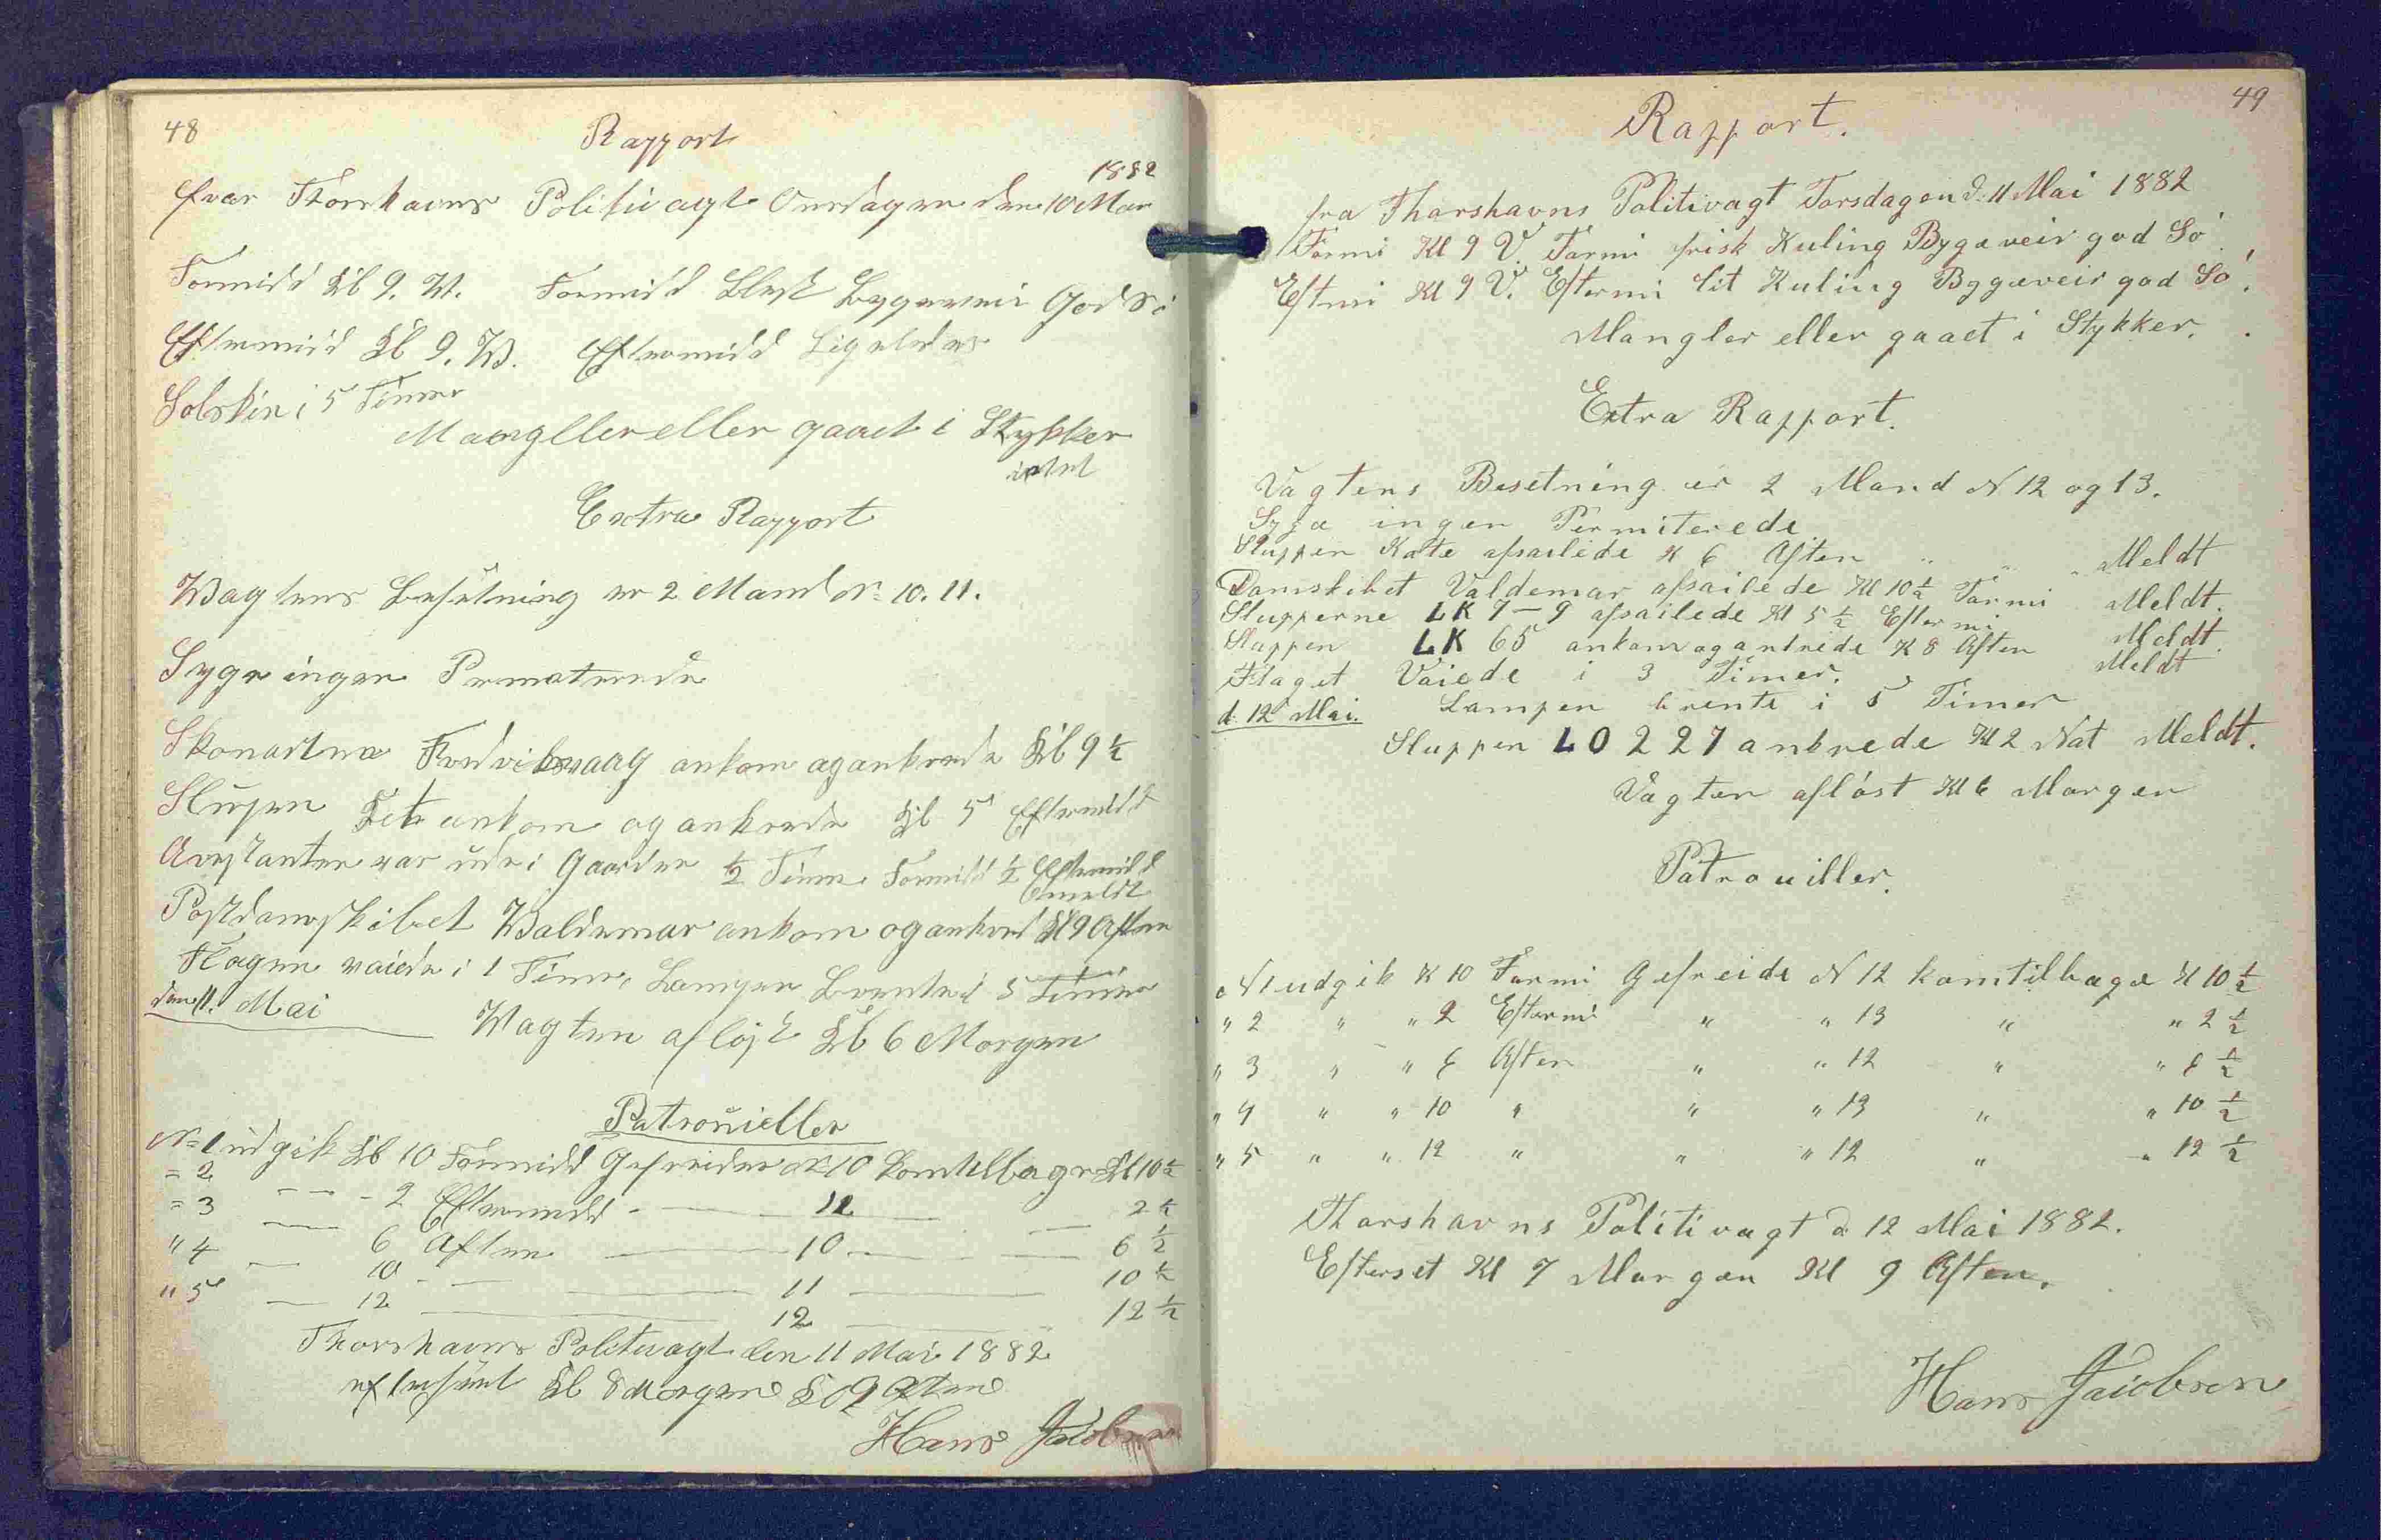 48
Rapport
1882
fraa Thorshavns Politivagt Onsdagen den 10 Mai
Formidd Kl 9. V. Formidd Blest Bygeveir God Sö
Eftermidd Kl 9. V. Eftermidd Ligeledes
Solskin i 5 Timer
Mangller eller gaaet i Stykker
intet
Extra Rapport
Wagtens Besetning er 2 Mand N= 10. 11.
Syge ingen Permeterede
Skonartne ankom og ankrede Kl 9 1/2
Slupen ankom og ankrede Kl 5 Eftermidd
Arestanten var ude i Gaarden 1/2 Time Formidd 1/2 Eftermidd
Postdampskibet Waldemar ankom og ankred Kl 9 Aften
Flagen vaiede i 1 Time, Lampen Brente i 5 Timer
den 11. Mai
Wagten aflöst Kl 6 Morgen
Patrouieller
N= 1 udgik Kl 10 Formidd Gefreider N= 10 kom tilbage Kl 10 1/2
= 2 — — - 2 Eftermidd - — 11 — — 2 1/2
= 3 — 6 Aften — 10 — — 6 1/2
" 4 — 10 - — — 11 — 10 1/2
" 5 — 12 — 12 — 12 1/2
Thorshavns Politivagt den 11 Mai 1882
efterseet Kl 8 Morgen Kl 9 Aften
Hans Jacobsen
49
Rapport.
fra Thorshavns Politivagt Torsdagen d. 11 Mai 1882
Formi Kl 9 V. Formi frisk Kuling Bygeveir god Sö.
Eftmi Kl 9 V. Eftermi lit Kuling Bygeveir god Sö.
Mangler eller gaaet i Stykker.
Extra Rapport.
Vagtens Besetning er 2 Mand N 12 og 13.
Syge ingen Permiterede
Sluppen Kate afsailede K 6 Aften " " " Meldt
Damskibet Valdemar afsailede Kl 10 1/2 Formi Meldt.
Slupperne LK 7 — 9 afsailede Kl 5 1/2 Eftermi Meldt.
Sluppen LK 65 ankom og ankrede K 8 Aften Meldt
Flaget Vaiede i 3 Timer.
Lampen brente i 5 Timer
d. 12 Mai.
Sluppen LO 227 ankrede Kl 2 Nat Meldt.
Vagten aflöst Kl 6 Morgen
Patrouiller.
N 1 udgik K 10 Formi Gefreide N 12 kom tilbage K 10 1/2
" 2 " " 2 Eftermi " " 13 " " 2 1/2
" 3 " " 6 Aften " " 12 " " 6 1/2
" 4 " " 10 " " " 13 " " 10 1/2
" 5 " " 12 " " " 12 " " 12 1/2
Thorshavns Politivagt d 12 Mai 1882.
Efterset Kl 7 Morgen Kl 9 Aften.
Hans Jacobsen